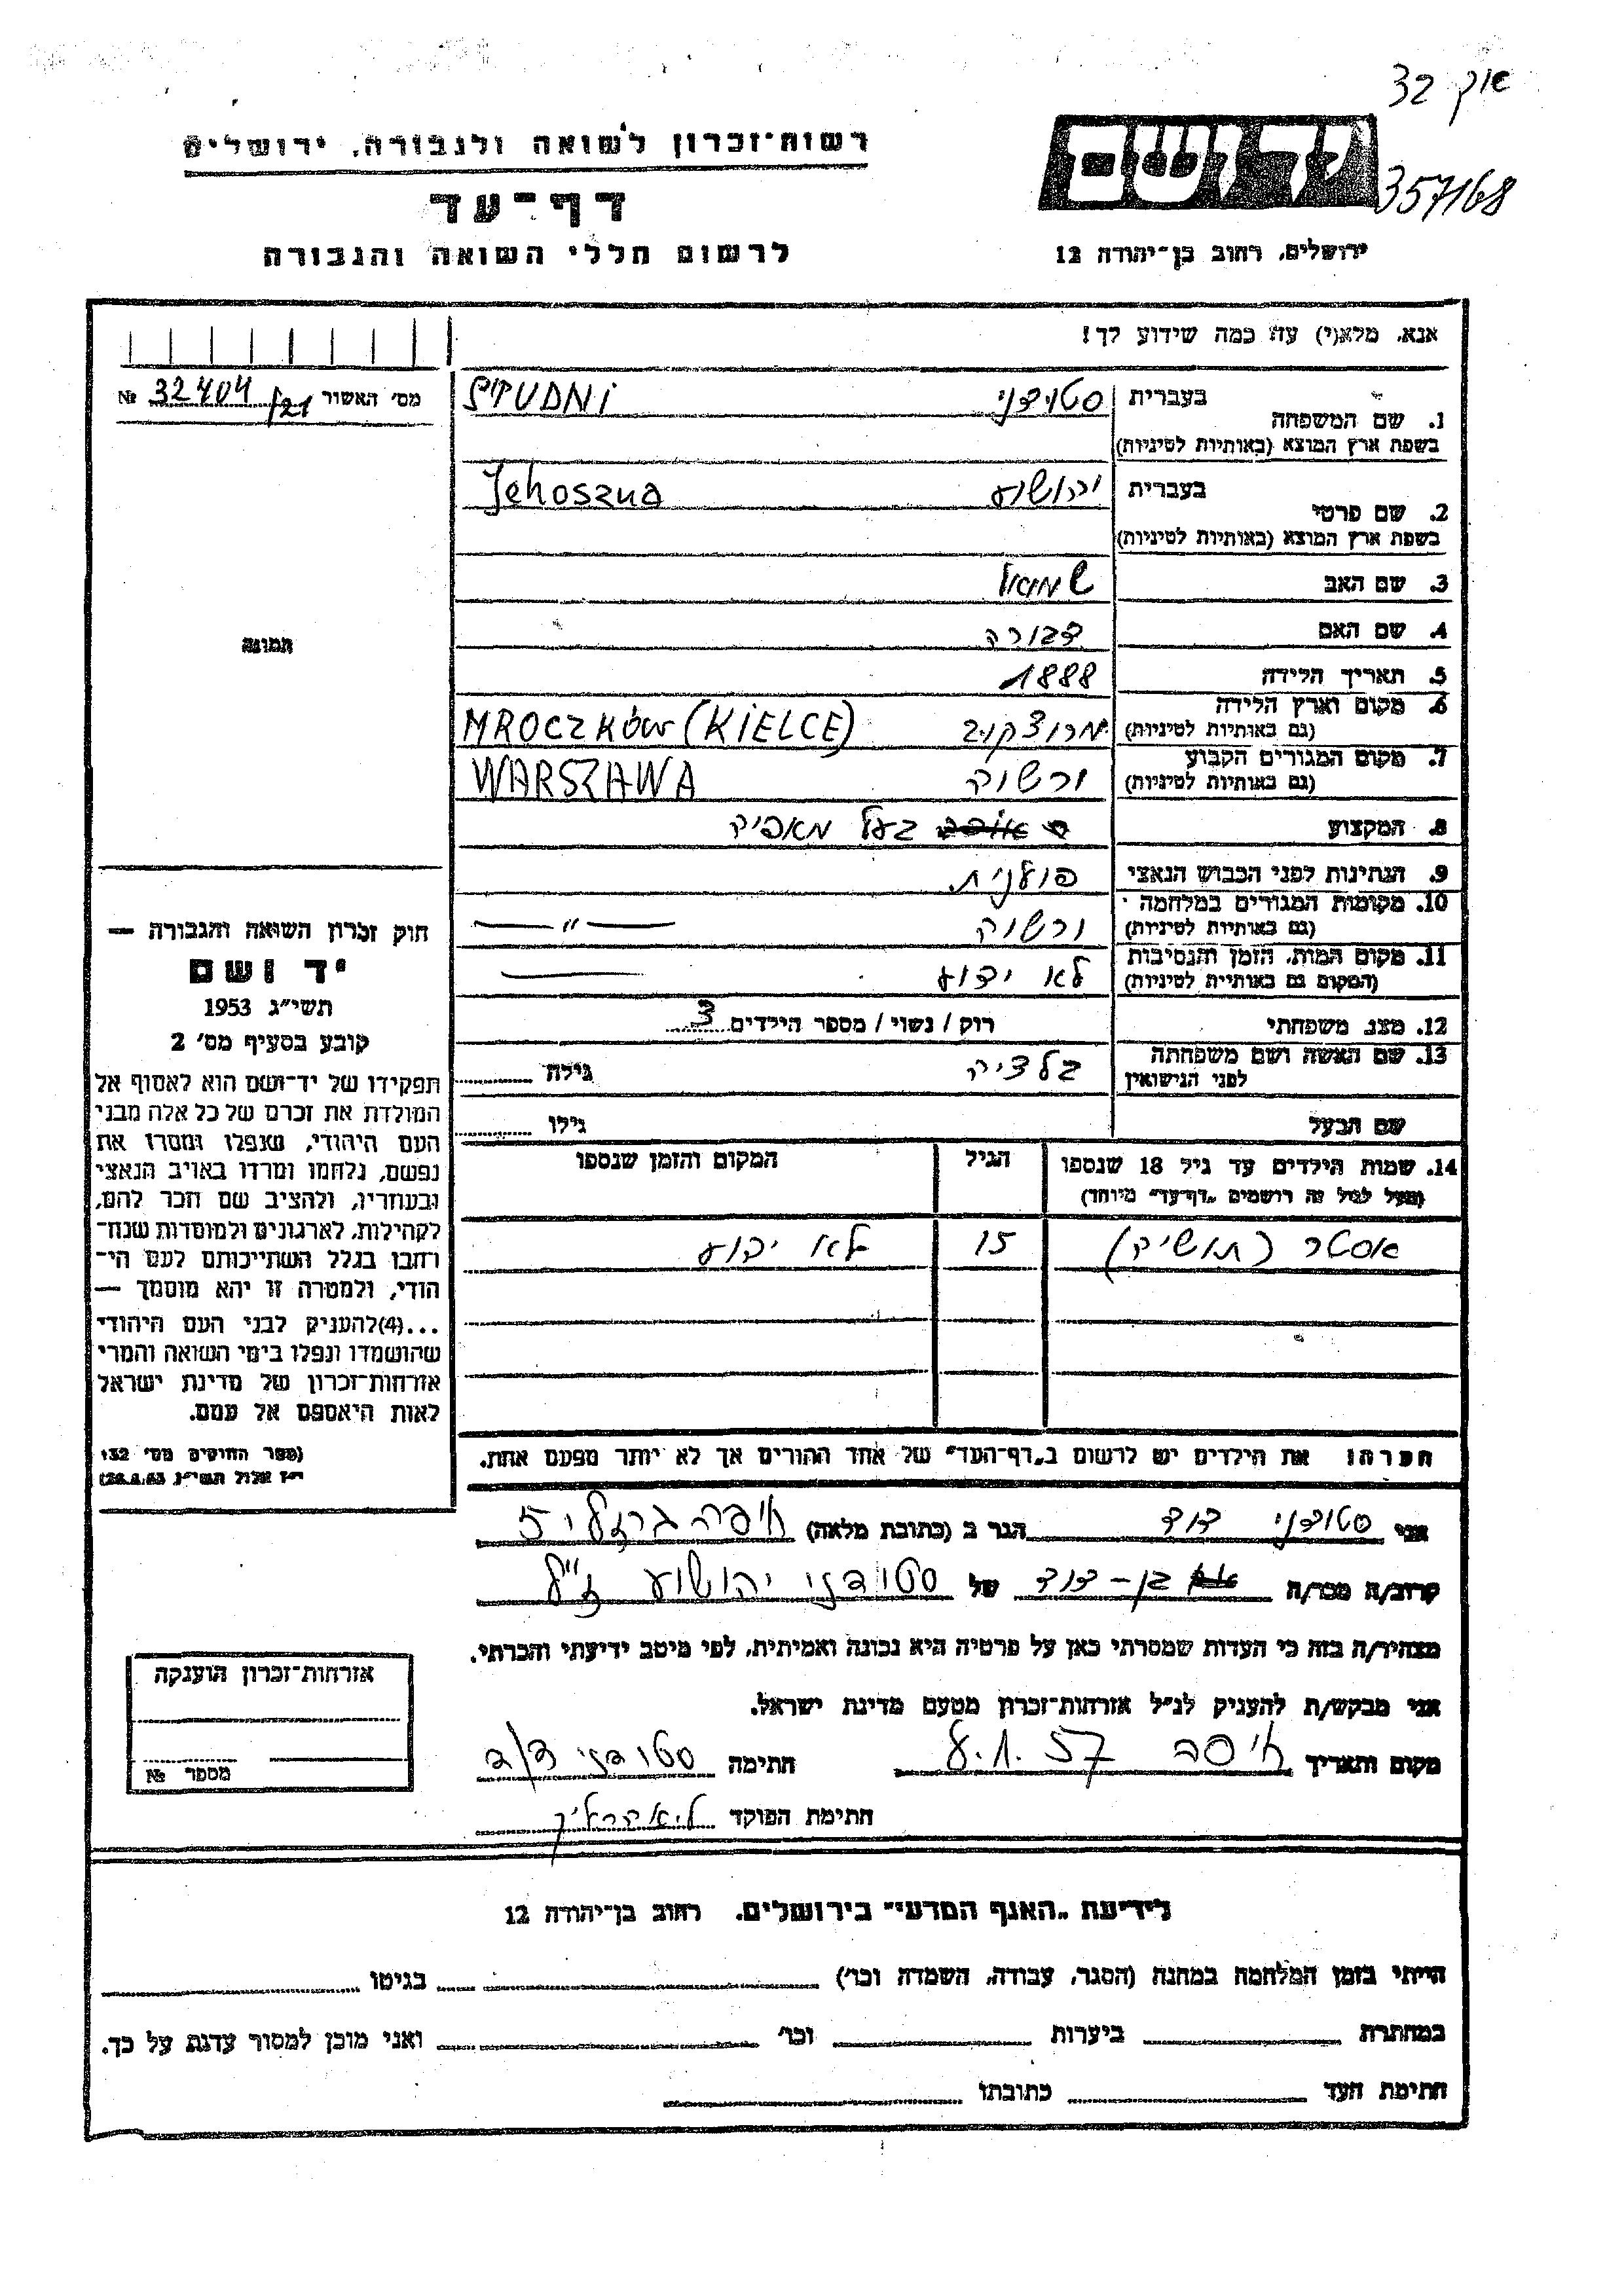 אוק 32
רשות-זכרון לשואה ולגבורה, ירושלים
יד ושם
357168
דף-עד
לרשום חללי השואה והגבורה
ירושלים, רחוב בן-יהודה 12
אנא, מלא(י) עד כמה שידוע לך!
מס' האשור 32404/21 №
1. שם המשפחה
בעברית סטודני STUDNI
בשפת ארץ המוצא (באותיות לטיניות)
2. שם פרטי
בעברית יהושוע Jehoszua
בשפת ארץ המוצא (באותיות לטיניות)
3. שם האב שמואל
4. שם האם דבורה
5. תאריך הלידה 1888
6. מקום וארץ הלידה מרוצקוב MROCZKÓW (KIELCE)
(גם באותיות לטיניות)
7. מקום המגורים הקבוע ורשוה WARSZAWA
(גם באותיות לטיניות)
8. המקצוע בעל מאפיה
9. הנתינות לפני הכבוש הנאצי פולנית
10. מקומות המגורים במלחמה ורשוה — " —
(גם באותיות לטיניות)
11. מקום המות, הזמן והנסיבות לא ידוע —
(המקום גם באותיות לטיניות)
12. מצב משפחתי רוק / נשוי / מספר הילדים 3
13. שם האשה ושם משפחתה גילה
לפני הנישואין
שם הבעל גילו
14. שמות הילדים עד גיל 18 שנספו הגיל המקום והזמן שנספו
(מעל לגיל זה רושמים "דף-עד" מיוחד)
אסטר 15 לא ידוע
הערה: את הילדים יש לרשום ב"דף-העד" של אחד ההורים אך לא יותר מפעם אחת.
תמונה
חוק זכרון השואה והגבורה —
יד ושם
תשי"ג 1953
קובע בסעיף מס' 2
תפקידו של יד-ושם הוא לאסוף אל
המולדת את זכרם של כל אלה מבני
העם היהודי, שנפלו ומסרו את
נפשם, נלחמו ומרדו באויב הנאצי
ובעוזריו, ולהציב שם וזכר להם,
לקהילות, לארגונים ולמוסדות שנח-
רחבו בגלל השתייכותם לעם הי-
הודי, ולמטרה זו יהא מוסמך —
...(4)להעניק לבני העם היהודי
שהושמדו ונפלו בימי השואה והמרי
אזרחות-זכרון של מדינת ישראל
לאות היאספם אל עמם.
(ספר החוקים מס' 132
י"ז אלול תשי"ג
אני סטודני דוד הגר ב (כתובת מלאה) חיפה 5
קרוב/ה מכר/ה בן-דוד של סטודני יהושוע ז"ל
מצהיר/ה בזה כי העדות שמסרתי כאן על פרטיה היא נכונה ואמיתית, לפי מיטב ידיעתי והכרתי.
אני מבקש/ת להעניק לנ"ל אזרחות-זכרון מטעם מדינת ישראל.
מקום ותאריך חיפה 57 חתימה סטודני דוד
חתימת הפוקד
אזרחות-זכרון הוענקה
מספר №
לידיעת "האגף המדעי" בירושלים, רחוב בן-יהודה 12
הייתי בזמן המלחמה במחנה (הסגר, עבודה, השמדה וכו') בגיטו
במחתרת ביערות וכו' ואני מוכן למסור עדות על כך.
חתימת העד כתובתו